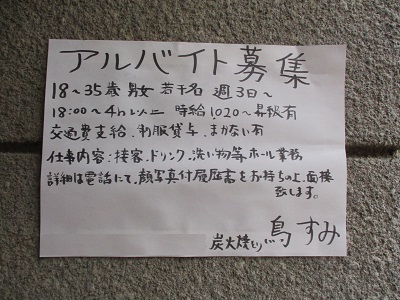 アルバイト募集
18〜35歳 男女 若干名 週3日〜
18:00〜4h以上 時給1,020〜昇給有
交通費支給、制服貸与、まかない有
仕事内容:接客、ドリンク、洗い物等ホール業務
詳細は電話にて、顔写真付履歴書をお持ちの上、面接
致します。
炭火焼き 鳥すみ